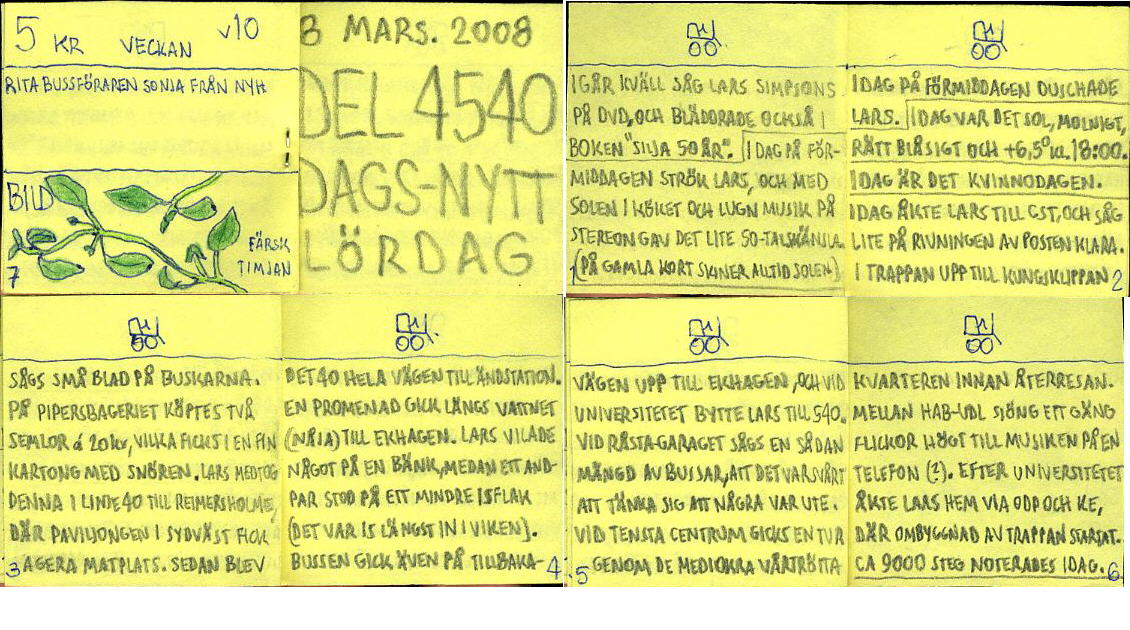 5 KR VECKAN v10
RITA BUSSFÖRAREN SONJA FRÅN NYH
!
BILD
FÄRSK
TIMJAN
7
8 MARS. 2008
DEL 4540
DAGS-NYTT
LÖRDAG
IGÅR KVÄLL SÅG LARS SIMPSONS
PÅ DVD, OCH BLÄDDRADE OCKSÅ I
BOKEN "SILJA 50 ÅR". IDAG PÅ FÖR-
MIDDAGEN STRÖK LARS, OCH MED
SOLEN I KÖKET OCH LUGN MUSIK PÅ
STEREON GAV DET LITE 50-TALSKÄNSLA.
(PÅ GAMLA KORT SKINER ALLTID SOLEN)
1
IDAG PÅ FÖRMIDDAGEN DUSCHADE
LARS. IDAG VAR DET SOL, MOLNIGT,
RÄTT BLÅSIGT OCH +6,5° KL. 18:00.
IDAG ÄR DET KVINNODAGEN.
IDAG ÅKTE LARS TILL CST, OCH SÅG
LITE PÅ RIVNINGEN AV POSTEN KLARA.
I TRAPPAN UPP TILL KUNGSKLIPPAN
2
SÅGS SMÅ BLAD PÅ BUSKARNA.
PÅ PIPERSBAGERIET KÖPTES TVÅ
SEMLOR á 20 kr, VILKA FICKS I EN FIN
KARTONG MED SNÖREN. LARS MEDTOG
DENNA I LINJE 40 TILL REIMERSHOLME,
DÄR PAVILJONGEN I SYDVÄST FICK
3 AGERA MATPLATS. SEDAN BLEV
DET 40 HELA VÄGEN TILL ÄNDSTATION.
EN PROMENAD GICK LÄNGS VATTNET
(NÄJA) TILL EKHAGEN. LARS VILADE
NÅGOT PÅ EN BÄNK, MEDAN ETT AND-
PAR STOD PÅ ETT MINDRE ISFLAK
(DET VAR IS LÄNGST IN I VIKEN).
BUSSEN GICK ÄVEN PÅ TILLBAKA-
4
VÄGEN UPP TILL EKHAGEN, OCH VID
UNIVERSITETET BYTTE LARS TILL 540.
VID RÅSTA-GARAGET SÅGS EN SÅDAN
MÄNGD AV BUSSAR, ATT DET VAR SVÅRT
ATT TÄNKA SIG ATT NÅGRA VAR UTE.
VID TENSTA CENTRUM GICKS EN TUR
5 GENOM DE MEDIOKRA VÅRTRÖTTA
KVARTEREN INNAN ÅTERRESAN.
MELLAN HAB-UDL SJÖNG ETT GÄNG
FLICKOR HÖGT TILL MUSIKEN PÅ EN
TELEFON (?). EFTER UNIVERSITETET
ÅKTE LARS HEM VIA ODP OCH KE,
DÄR OMBYGGNAD AV TRAPPAN STARTAT.
CA 9000 STEG NOTERADES IDAG.
6